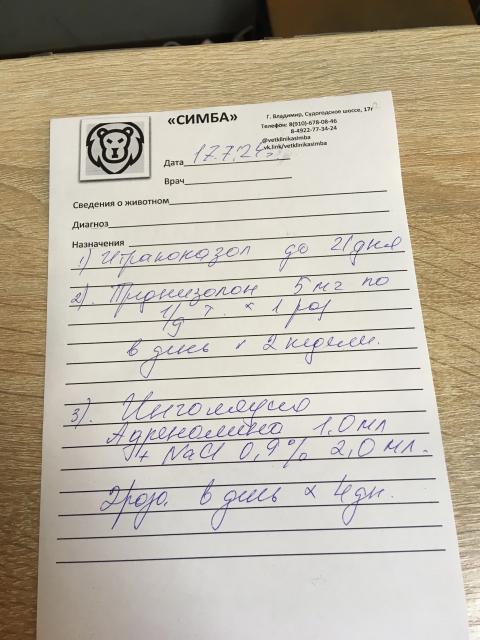 «СИМБА»
Г. Владимир, Судогодское шоссе, 17г
Телефон: 8(910)-678-08-46
8-4922-77-34-24
@vetklinikasimba
vk.link/vetklinikasimba
Дата 17.7.24г.
Врач
Сведения о животном
Диагноз
Назначения
1) Итраконазол до 21 дня
2). Преднизолон 5 мг по
т. × 1 раз
в день × 2 недели.
3). Ингаляция
Адреналина 1,0 мл
+ NaCl 0,9% 2,0 мл.
2 раза в день × 4 дн.